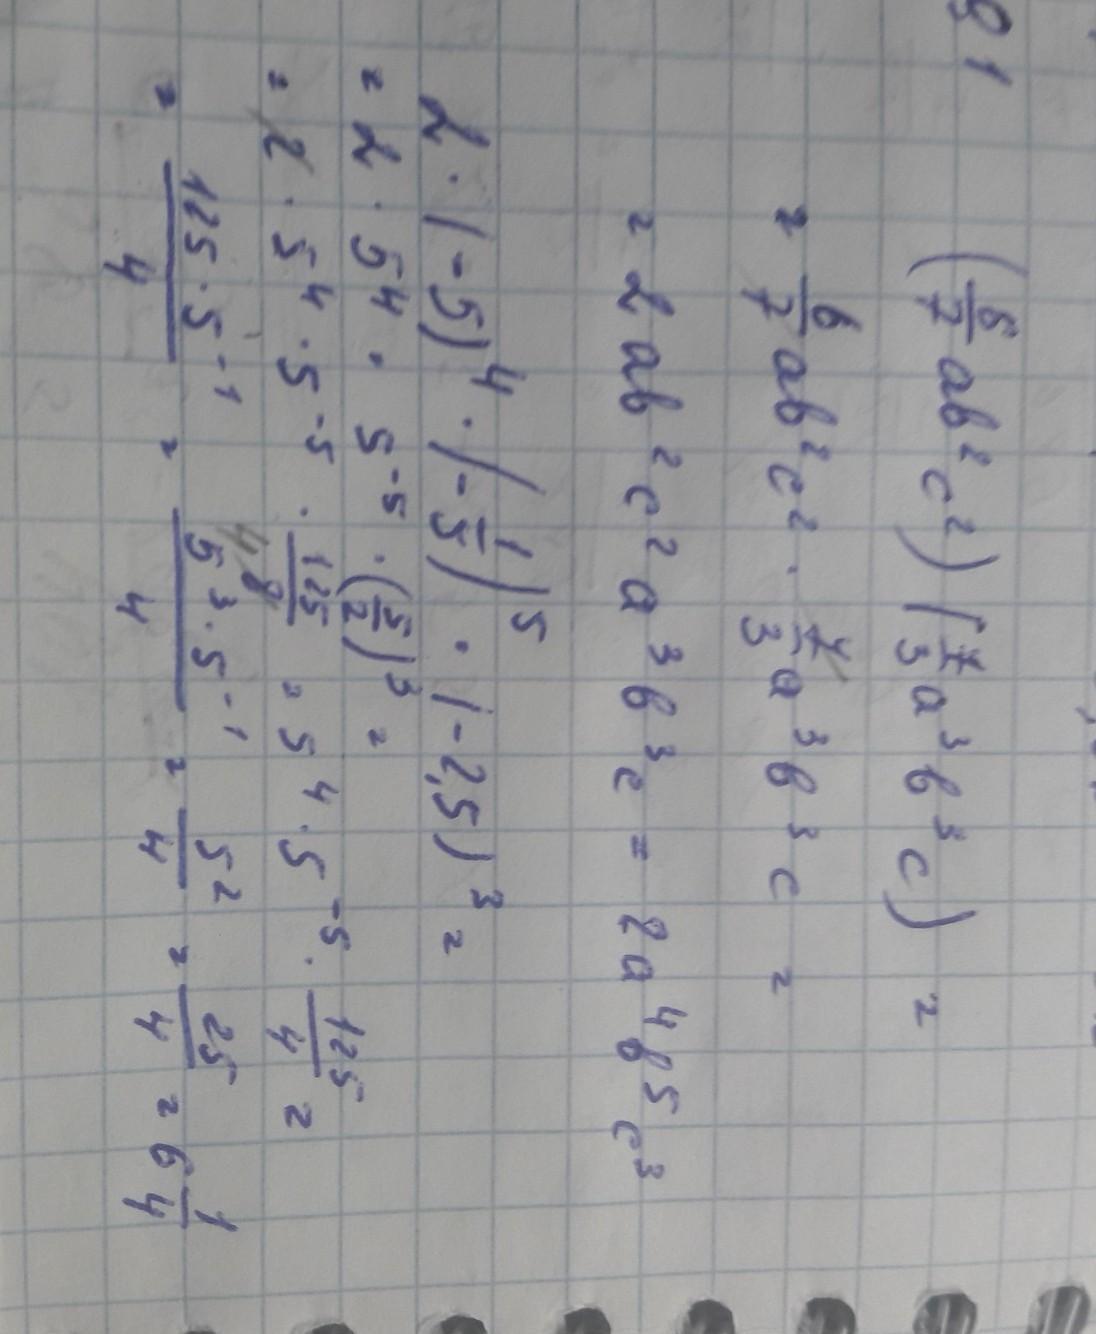 91
(6/7 ab²c²) (7/3 a³b³c) =
= 6/7 ab²c² · 7/3 a³b³c =
= 2ab²c²a³b³c = 2a⁴b⁵c³
2 · (-5)⁴ · (-1/5)⁵ · (-2,5)³ =
= 2 · 5⁴ · 5⁻⁵ · (5/2)³ =
= 2 · 5⁴ · 5⁻⁵ · 125/8 4 = 5⁴ · 5⁻⁵ · 125/4 =
= 125·5⁻¹/4 = 5³·5⁻¹/4 = 5²/4 = 25/4 = 6 1/4